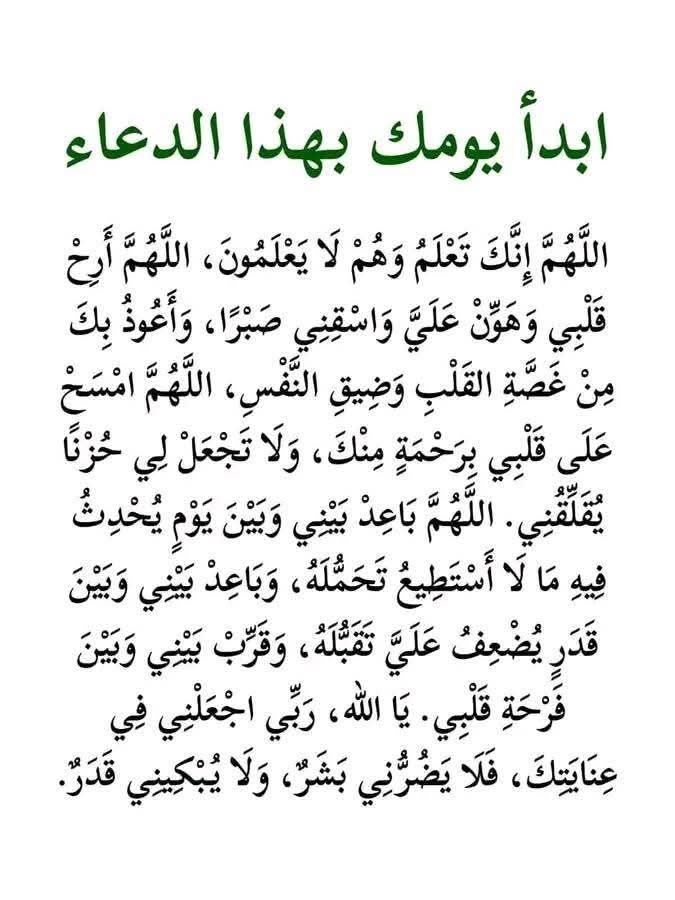 ابدأ يومك بهذا الدعاء
اللَّهُمَّ إِنَّكَ تَعْلَمُ وَهُمْ لَا يَعْلَمُونَ، اللَّهُمَّ أَرِحْ
قَلْبِي وَهَوِّنْ عَلَيَّ وَاسْقِنِي صَبْرًا، وَأَعُوذُ بِكَ
مِنْ غَصَّةِ القَلْبِ وَضِيقِ النَّفْسِ، اللَّهُمَّ امْسَحْ
عَلَى قَلْبِي بِرَحْمَةٍ مِنْكَ، وَلَا تَجْعَلْ لِي حُزْنًا
يُقَلِّقُنِي. اللَّهُمَّ بَاعِدْ بَيْنِي وَبَيْنَ يَوْمٍ يُحْدِثُ
فِيهِ مَا لَا أَسْتَطِيعُ تَحَمُّلَهُ، وَبَاعِدْ بَيْنِي وَبَيْنَ
قَدَرٍ يُضْعِفُ عَلَيَّ تَقَبُّلَهُ، وَقَرِّبْ بَيْنِي وَبَيْنَ
فَرْحَةِ قَلْبِي. يَا الله، رَبِّي اجْعَلْنِي فِي
عِنَايَتِكَ، فَلَا يَضُرُّنِي بَشَرٌ، وَلَا يُبْكِينِي قَدَرٌ.